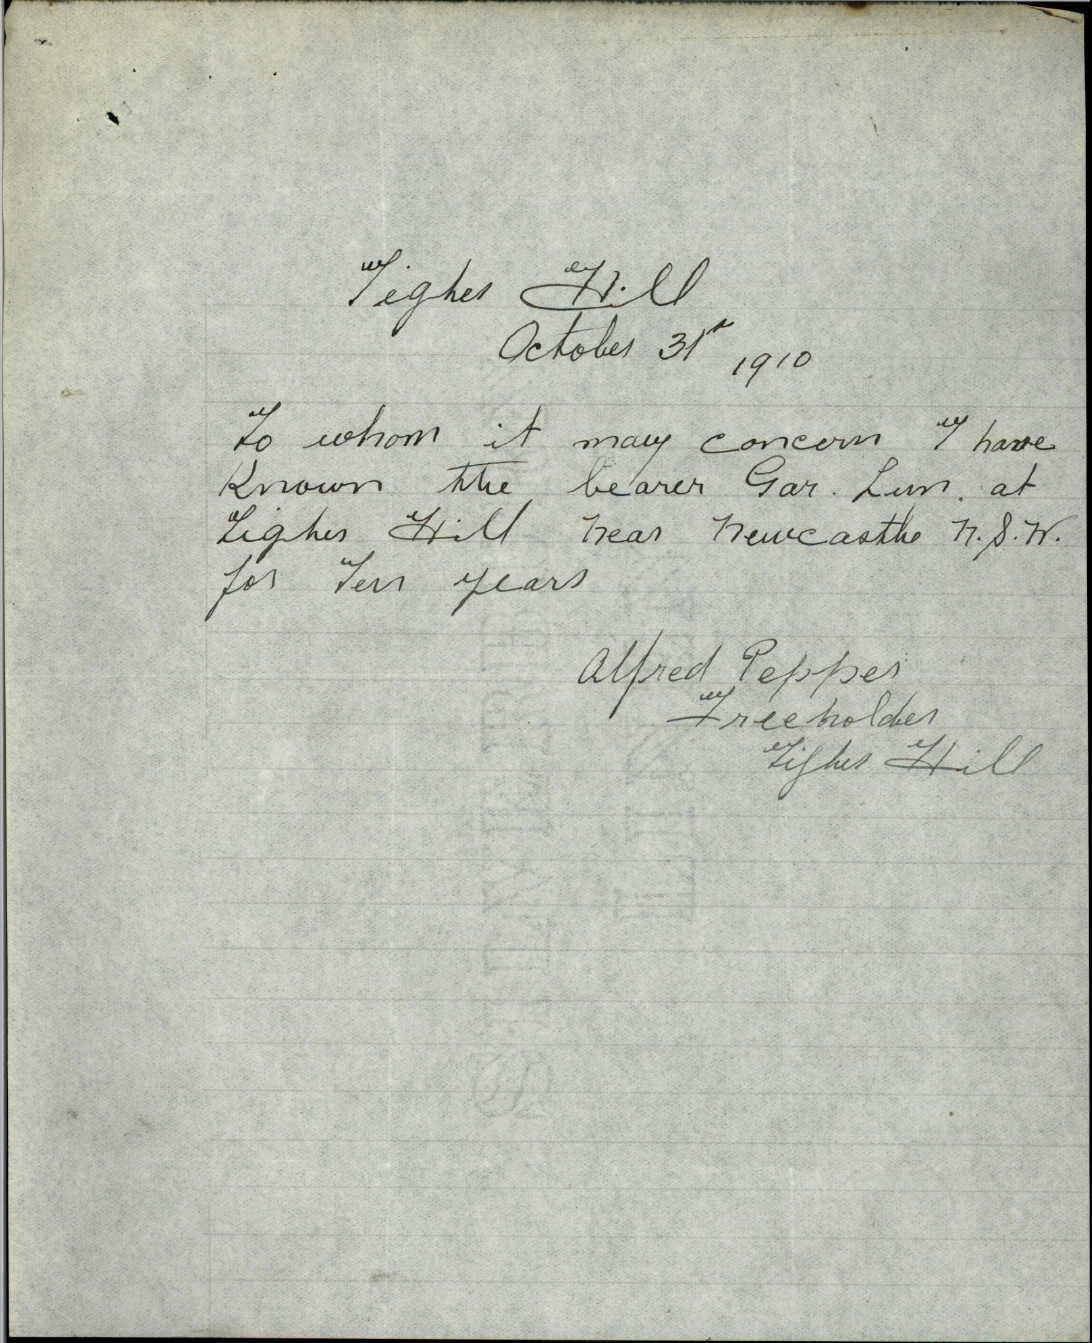 Tighes Hill
October 31st 1910
To whom it may concern I have
Known the bearer Gar. Lun. at
Tighes Hill near Newcastle N.S.W.
for Ten years
Alfred Pepper
Freeholder
Tighes Hill